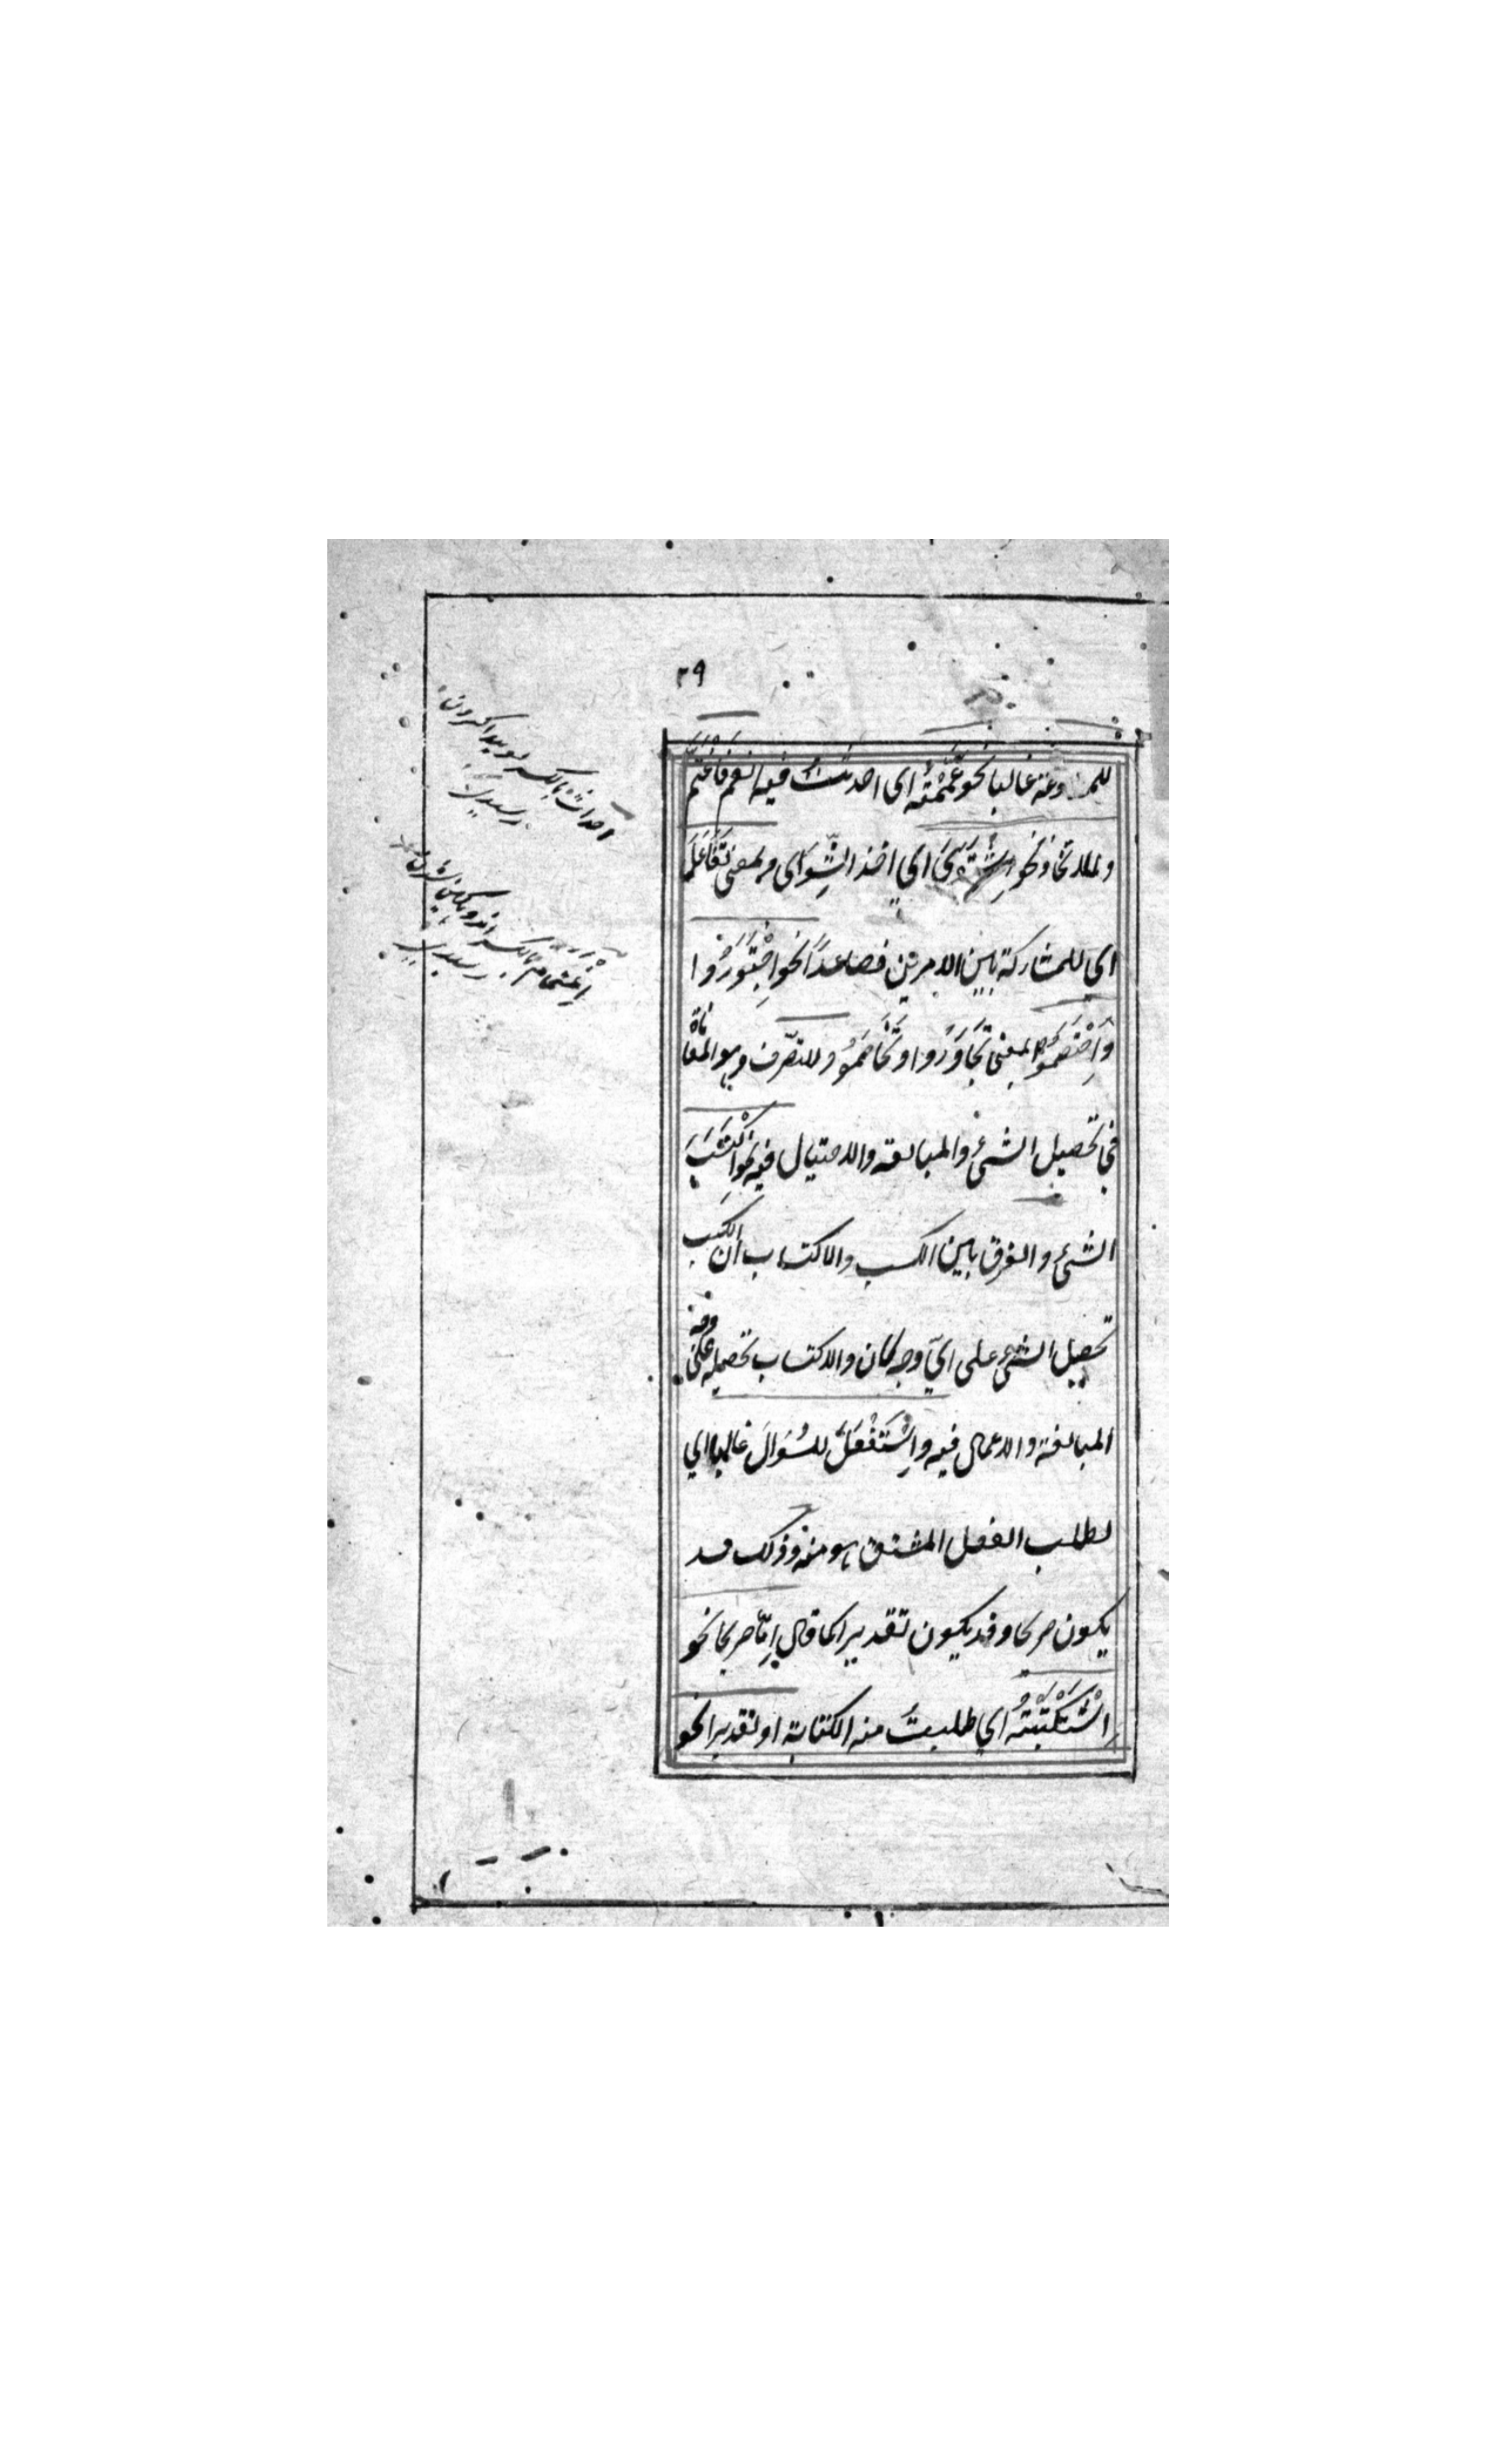 ٢٩
للمطاوعة غالبا نحو غَمَمْتُهُ اي احدثتُ فيه الغم فَاغْتَمَّ
وللاتخاذ نحو اِشْتَوَىَ اي اخذ الشِّوَاى وبمعنى تَفَاعَلَ
اي للمشاركة بين الامرين فصاعدًا نحو اِجْتَوَرُوا
وَاِخْتَصَمُوا بمعنى تَجَاوَرُوا وتَخَاصَمُوا وللتصّرف وهو المعاناة
في تحصيل الشئ والمبالغه والاحتيال فيه نحو اكْتَسَبَ
الشئ والفرق بين الكسب والاكتساب ان الكسب
تحصيل الشئ على ايّ وجه كان والاكتساب تحصيله على وجه
المبالغة والاعمال فيه واِسْتَفْعَلَ للسُؤالَ غالبا اي
لطلب الفعل المشتق هو منه وذلك قد
يكون صريحا وقد يكون تقديرا كما قال اِمّا صريحا نحو
اسْتَكْتَبْتُهُ اي طلبتُ منه الكتابة او تقديرا نحو
احداث بالكسر نو پيدا كردن
اِغتمام بالكسر اندوهكين شدن